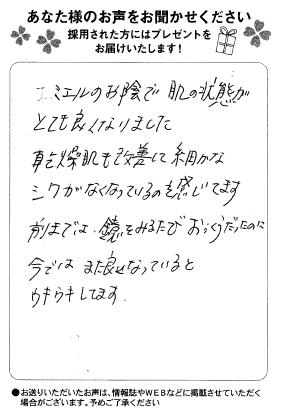 あなた様のお声をお聞かせください
採用された方にはプレゼントを
お届けいたします!
エミエルのお陰で 肌の状態が
とても良くなりました
乾燥肌も改善して 細かな
シワがなくなっているのを感じてます
前までは、鏡をみるたび おっくうだったのに
今では また良くなっていると
ウキウキしてます.
●お送りいただいたお声は、情報誌やWEBなどに掲載させていただく
場合がございます。予めご了承ください